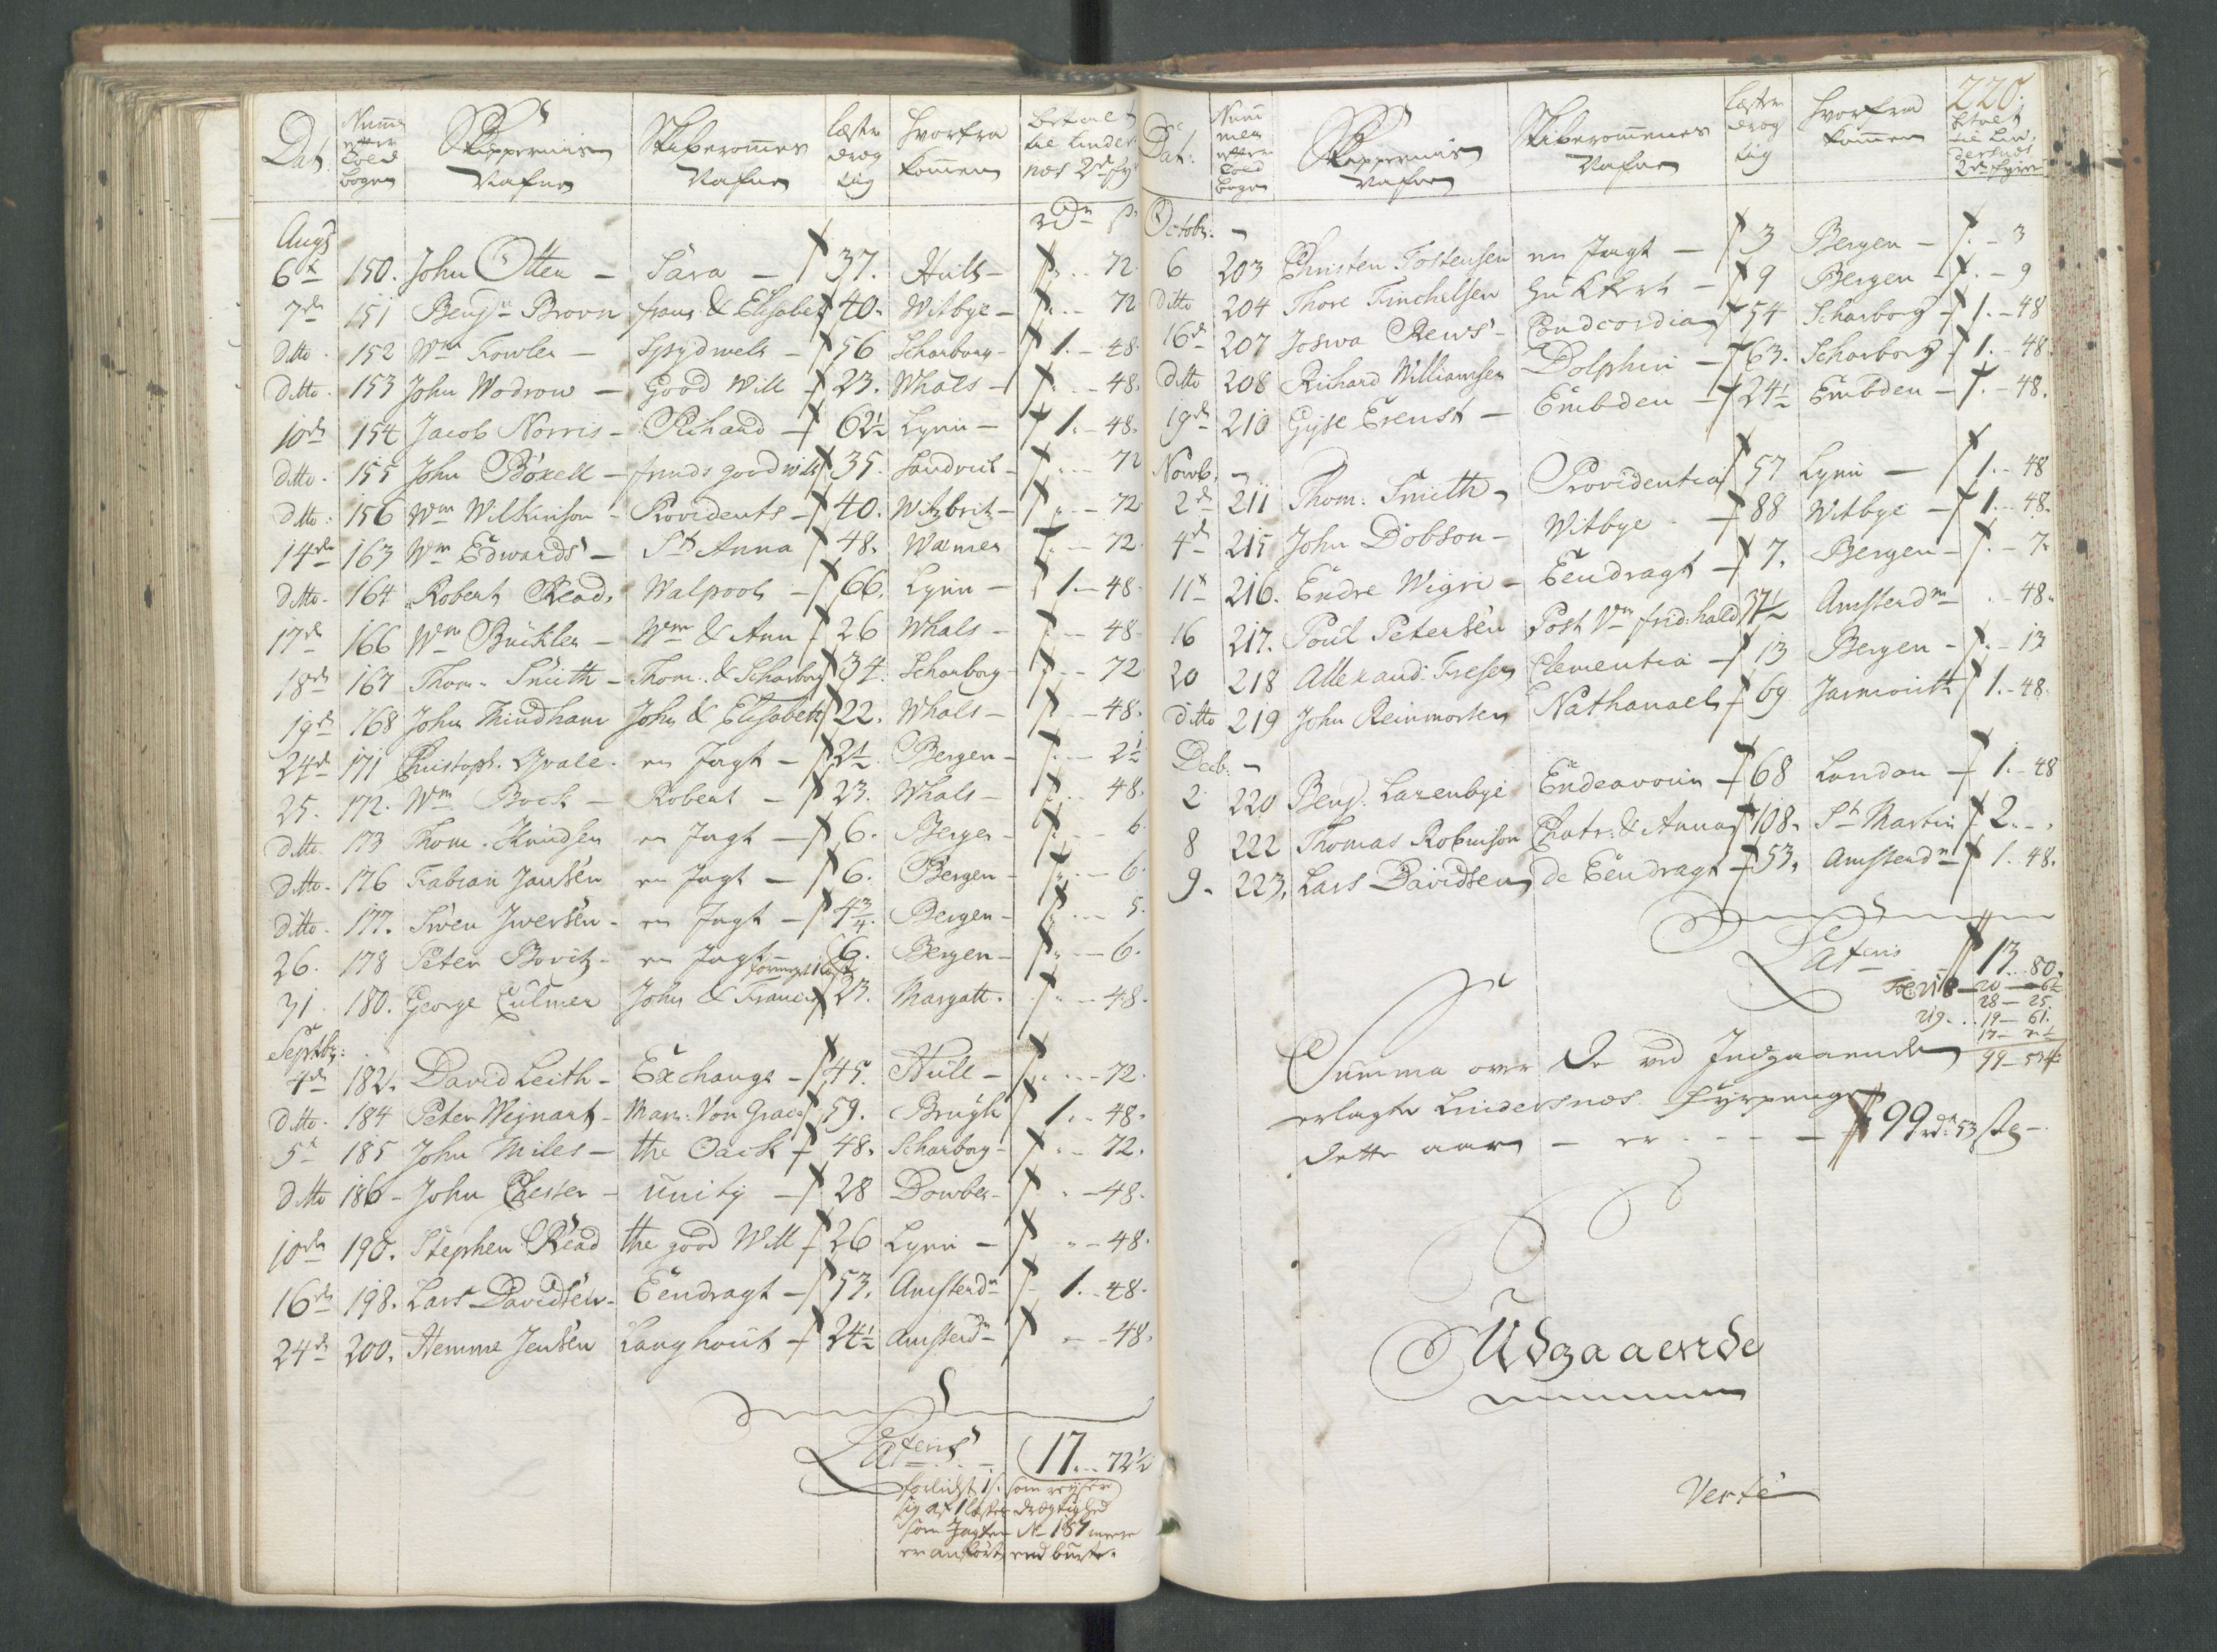 Dat:
Num̄
etter
Told
bogen
Skippernis
Nafne
Skiberommes
Nafne
læster
drog
tig
hvorfra
kommen
betalt
til Linders
næs 2de fyr
rdr s
Aug:
6t 150. John Otten – Sara – 37. Hull – 72
7de 151 Benj:n Brown frans & Elisabet 40. Witbye – 72
Ditto 152 Wm Fowler – Spydwels – 56 Scharborg – 1. – 48
Ditto 153 John Wodrow – Good Will – 23. Whals – 48.
10de 154 Jacob Norris – Richard – 62½ Lynn – 1. – 48.
ditto 155 John Boxell – frinds good will 35. Sandvick – 72
ditto: 156 Wm Wilkinson – Providents – 40. Witzbritz – 72
14de 163 Wm Edwards – St Anna 48. Warnes – 72.
ditto. 164 Robert Read, Walpool – 66. Lynn – 1. – 48.
17de 166 Wm Buckler – Wm & Ann – 26 Whals – 48
18de 167 Thom. Smith – Thom. & Scharborg 34. Scharborg – 72
19de 168 John Thindham John & Elisabeth 22. Whals – 48.
24de 171 Christoph. Qvale. en Jagt – 2½ Bergen – 2½
25. 172. Wm Bock – Robert – 23. Whals – 48.
ditto 173 Thom. Knudsen en Jagt – 6. Bergen – 6.
ditto. 176 Fabian Jansen en Jagt – 6. Bergen – 6.
ditto. 177. Swen Iwersen – en Jagt – 4¾. Bergen – 5.
26. 178 Peter Bovitz – en Jagt – 6. Bergen – 6.
31. 180. George Culmer John & Francis 23. Margatt. – 48.
Septbr:
4de 182. David Leith – Exchange – 45. Hull – 72.
ditto. 184 Peter Wignart – Mar: Von Grace 59. Brugh 1. – 48.
5t 185 John Miles – the Oack – 48. Scharborg – 72.
ditto 186 – John Chester – Unity – 28 Dowber – 48.
10de 190. Stephen Read the good Will – 26 Lynn – 48.
16de 198. Lars Davidsen – Eendragt – 53. Amsterdm 1. – 48.
24de 200. Hemme Jensen Langhout – 24½ Amsterdm – 48.
Lateris – 17. – 72½
forlidst 1 s. som reyser
sig af 1 læster drægtighed
som Jagten No 157 meere
er anført end burte.
220.
Dat:
Num̄
mer
etter
Told
bogen
Skippernis
Nafne
Skiberommenes
Nafne
læster
drog
tig
hvorfra
kommen
betalt
til Lin
dersnes
2de fyrer
Octobr. –
6 203 Christen Tostensen en Jagt – 3 Bergen – 3
ditto 204 Thore Finchelsen Hukkert – 9 Bergen – 9
16de 207 Joswa Rews – Condcordia 54 Scharborg – 1. – 48
ditto 208 Richard Williamsen Dolphin – 63. Scharborg 1. – 48.
19de 210 Gyse Erenst – Embden – 24½ Embden – 48.
Novb. –
2de 211 Thom: Smith – Providentia 57 Lynn – 1. – 48
4de 215 John Dobson – Witbye – 88 Witbye – 1. – 48.
11t 216. Endre Wigri – Eendragt – 7. Bergen – 7.
16 217. Poul Petersen Post Vm frid:hald 37½ Amsterdm – 48.
20 218 Allexand: Fresen Clementia – 13 Bergen – 13
ditto 219 John Reinmorten Nathanael – 69 Jarmouth 1. – 48.
Decb. –
2 220 Benj. Lazenbye Endeavour – 68 London – 1. – 48
8 222 Thomas Robinson Chatr: & Anna 108. St Martin 2. – .
9. 223, Lars Davidsen de Eendragt – 53. Amsterdm 1. 48.
Lateris 13. 80.
28 – 25.
219. . 19 – 61.
99 – 53½
Summa over de ved Indgaaende
erlagte Lindersnæs fyrpenge
dette aar – er – – – 99 rdr. 53 s –
Udgaaende
Verte